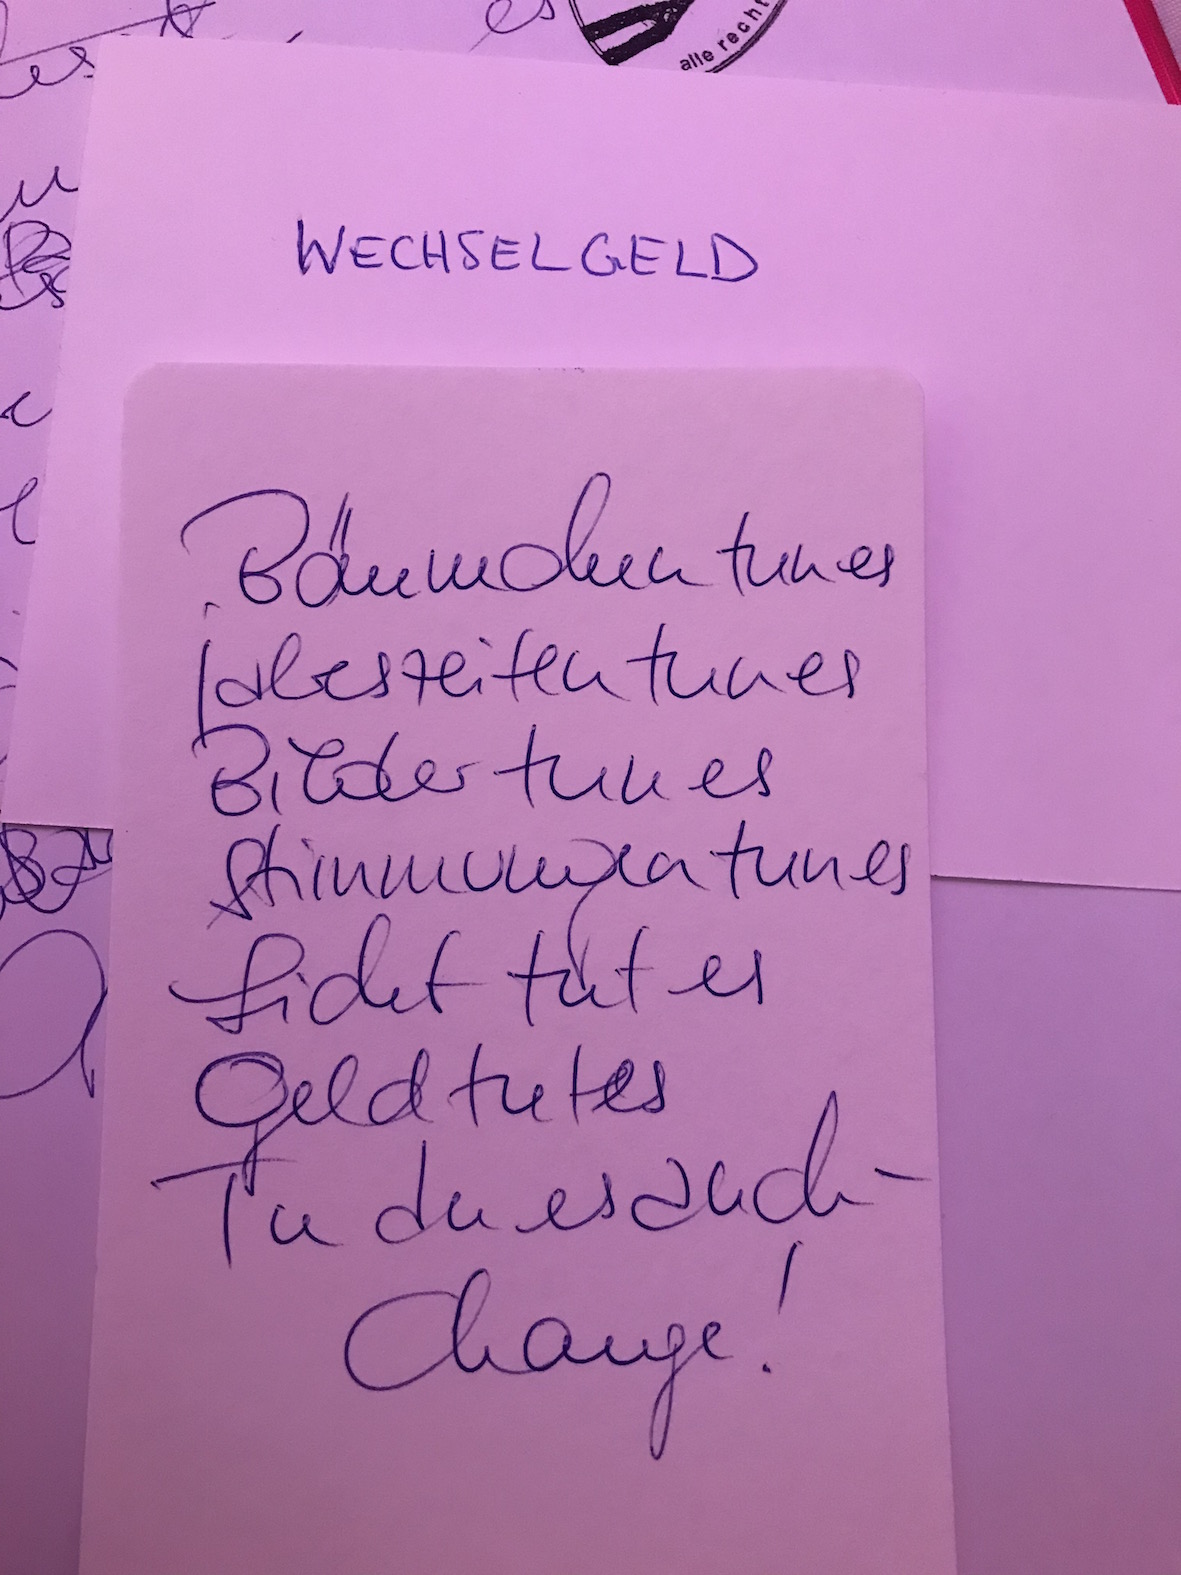 es
alle recht
WECHSELGELD
Bäumchen tun es
Jahreszeiten tun es
Bilder tun es
Stimmungen tun es
Licht tut es
Geld tut es
Tu du es auch –
Change!